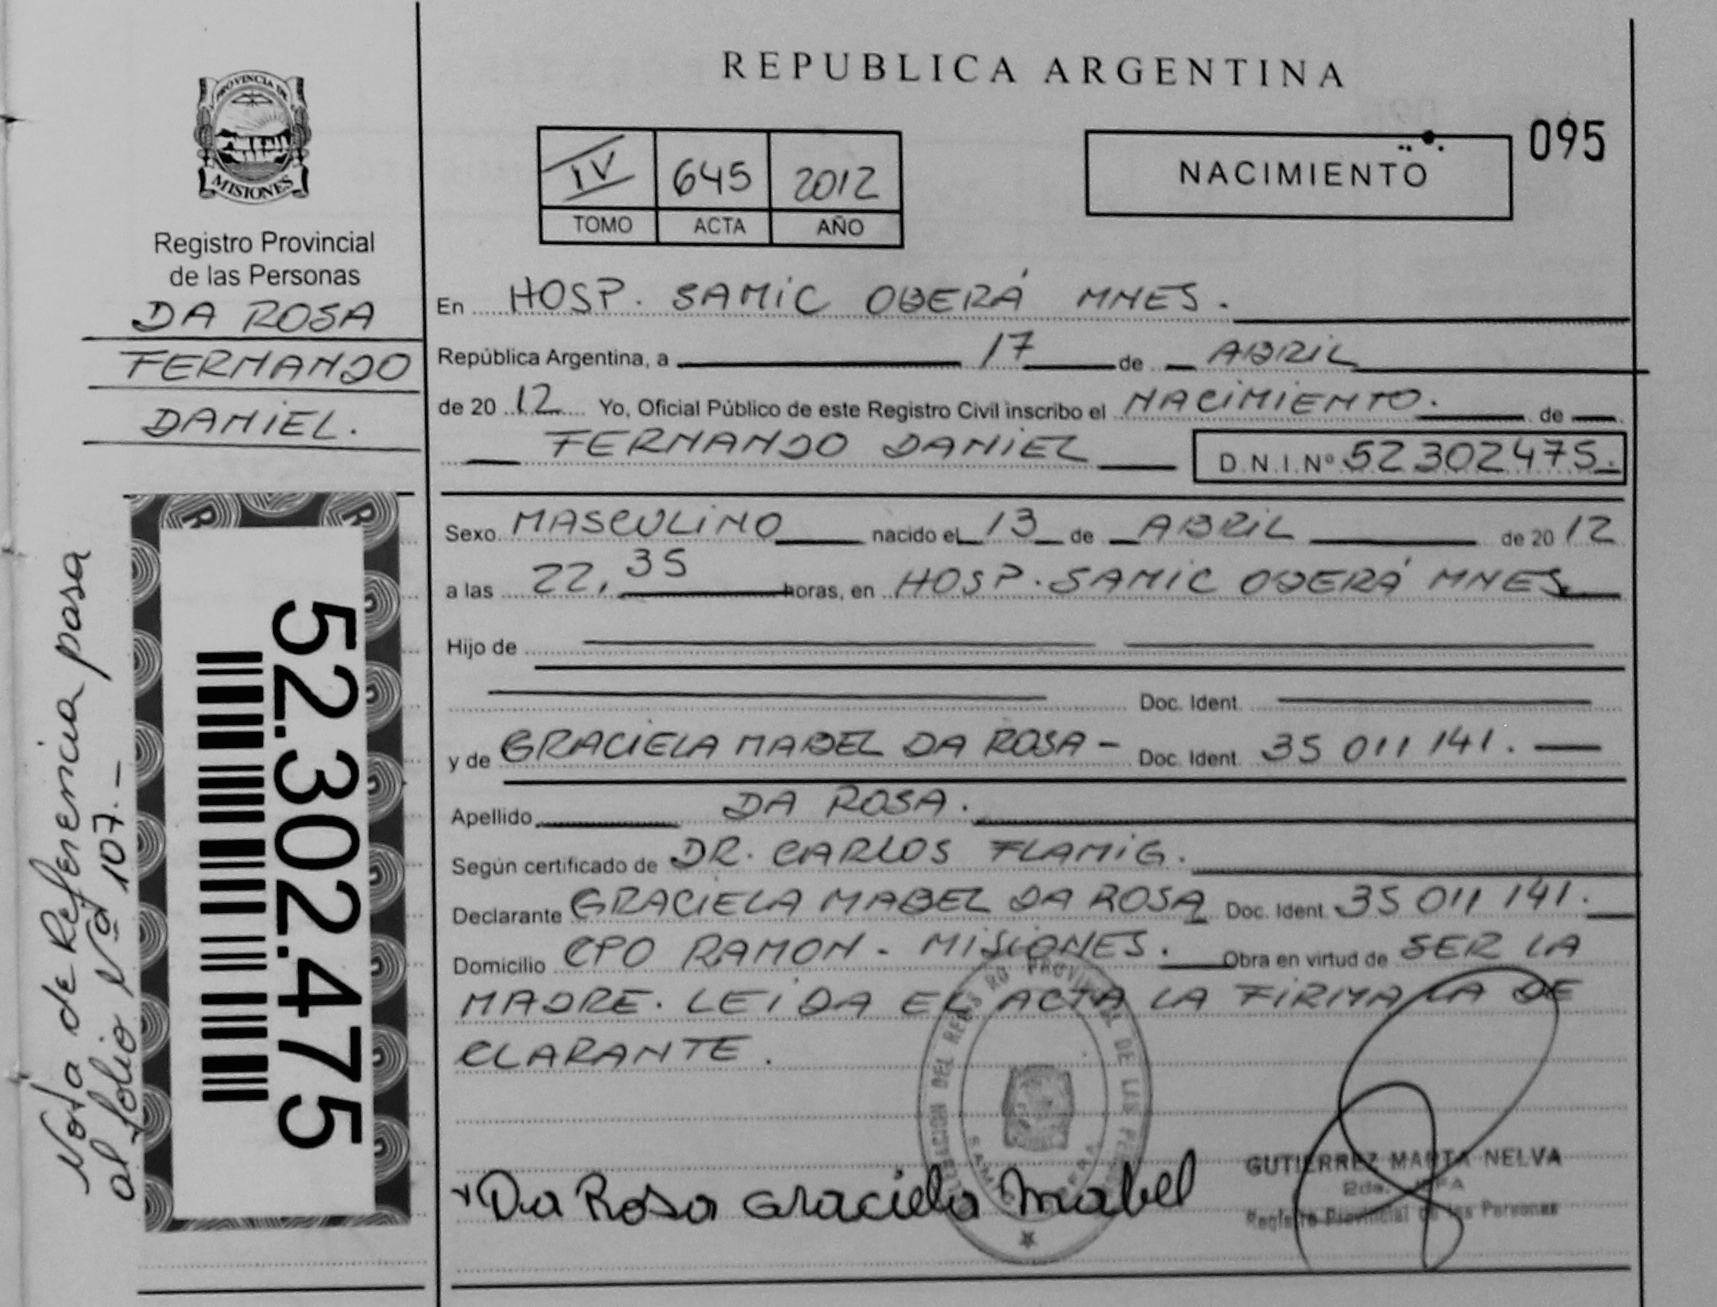 PROVINCIA DE
MISIONES
Registro Provincial
de las Personas
DA ROSA
FERNANDO
DANIEL.
52.302.475
Nota de Referencia pasa
al folio Nº 107.-
REPUBLICA ARGENTINA
IV 645 2012
TOMO ACTA AÑO
NACIMIENTO
095
En HOSP. SAMIC OBERÁ MNES.
República Argentina, a 17 de ABRIL
de 20 12 Yo, Oficial Público de este Registro Civil inscribo el NACIMIENTO. de
FERNANDO DANIEL D.N.I.Nº 52302475.
Sexo MASCULINO nacido el 13 de ABRIL de 20 12
a las 22,35 horas, en HOSP. SAMIC OBERÁ MNES
Hijo de
Doc. Ident.
y de GRACIELA MABEL DA ROSA - Doc. Ident. 35 011 141.
Apellido DA ROSA.
Según certificado de DR. CARLOS FLAMIG.
Declarante GRACIELA MABEL DA ROSA Doc. Ident. 35 011 141.
Domicilio CPO RAMON - MISIONES. Obra en virtud de SER LA
MADRE. LEIDA EL ACTA LA FIRMA LA DE
CLARANTE.
Da Rosa Graciela Mabel
GUTIERREZ MARTA NELVA
2da. JEFA
Registro Provincial de las Personas